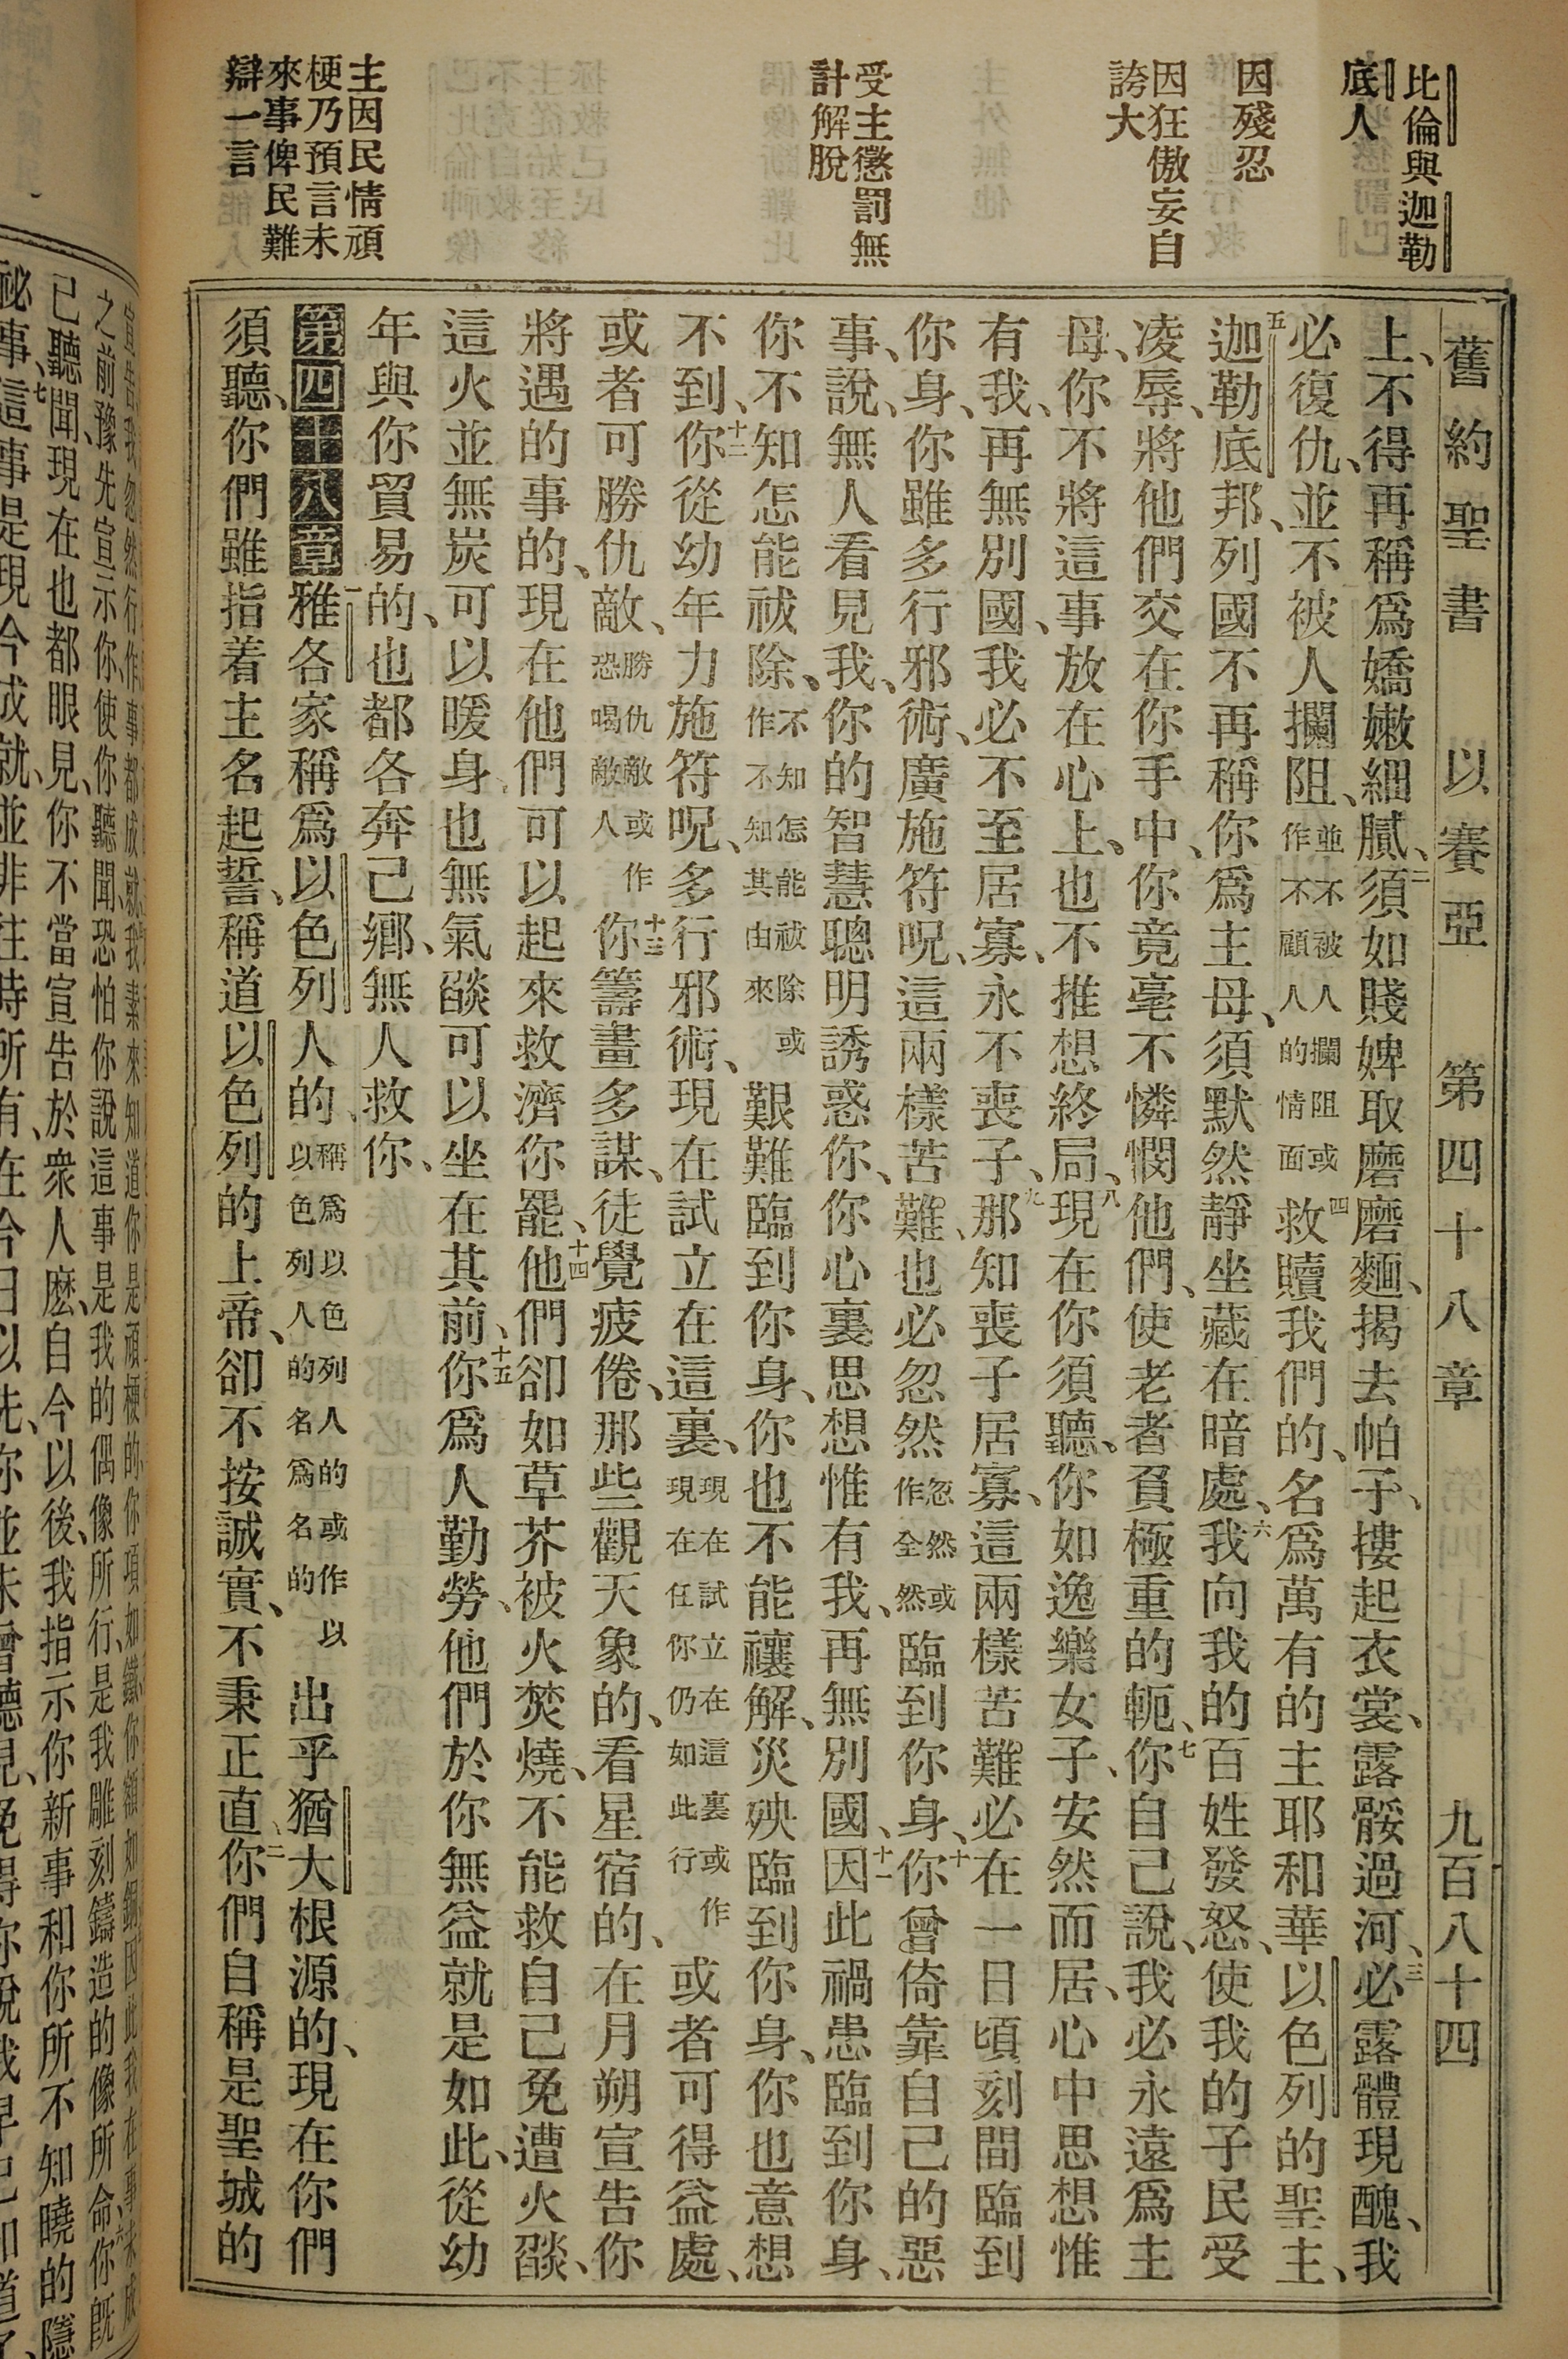 舊約聖書 以賽亞 第四十八章 九百八十四
比倫與迦勒
底人
因殘忍
因狂傲妄自
誇大
受主懲罰無
計解脫
主因民情頑
梗乃預言未
來事俾民難
辯一言
上、不得再稱爲嬌嫩細膩、二須如賤婢取磨磨麵、揭去帕子、摟起衣裳、露骽過河、三必露體現醜、我
必復仇、並不被人攔阻、並不被人攔阻或作不顧人的情面四救贖我們的、名爲萬有的主耶和華以色列的聖主、
五迦勒底邦、列國不再稱你爲主母、須默然靜坐藏在暗處、六我向我的百姓發怒、使我的子民受
凌辱、將他們交在你手中、你竟毫不憐憫他們、使老者負極重的軛、七你自己說、我必永遠爲主
母、你不將這事放在心上、也不推想終局、八現在你須聽、你如逸樂女子、安然而居、心中思想惟
有我、再無別國、我必不至居寡、永不喪子、九那知喪子居寡、這兩樣苦難必在一日頃刻間臨到
你身、你雖多行邪術、廣施符呪、這兩樣苦難、也必忽然忽然或作全然臨到你身、十你曾倚靠自己的惡
事、說、無人看見我、你的智慧聰明誘惑你、你心裏思想惟有我、再無別國、十一因此禍患臨到你身、
你不知怎能祓除、不知怎能祓除或作不知其由來艱難臨到你身、你也不能禳解、災殃臨到你身、你也意想
不到、十二你從幼年力施符呪、多行邪術、現在試立在這裏、現在試立在這裏或作現在任你仍如此行或者可得益處、
或者可勝仇敵、勝仇敵或作恐嚇敵人十三你籌畫多謀、徒覺疲倦、那些觀天象的、看星宿的、在月朔宣告你
將遇的事的、現在他們可以起來救濟你罷、十四他們卻如草芥被火焚燒、不能救自己免遭火燄、
這火並無炭可以暖身、也無氣燄可以坐在其前、十五你爲人勤勞、他們於你無益就是如此、從幼
年與你貿易的、也都各奔己鄉、無人救你、
第四十八章 一雅各家稱爲以色列人的、稱爲以色列人的或作以以色列人的名爲名的出乎猶大根源的、現在你們
須聽、你們雖指着主名起誓、稱道以色列的上帝、卻不按誠實、不秉正直、二你們自稱是聖城的